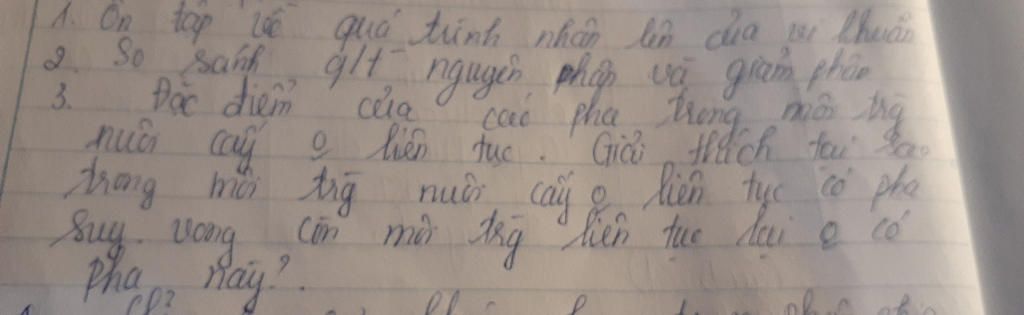 1. Ôn tập về quá trình nhân lên của vi khuẩn
2. So sánh g/t nguyên phân và giảm phân
3. Đặc điểm của các pha trong môi trg
nuôi cấy o liên tục. Giải thích tại sao
trong môi trg nuôi cấy o liên tục có pha
suy vong còn môi trg liên tục lại o có
pha này?